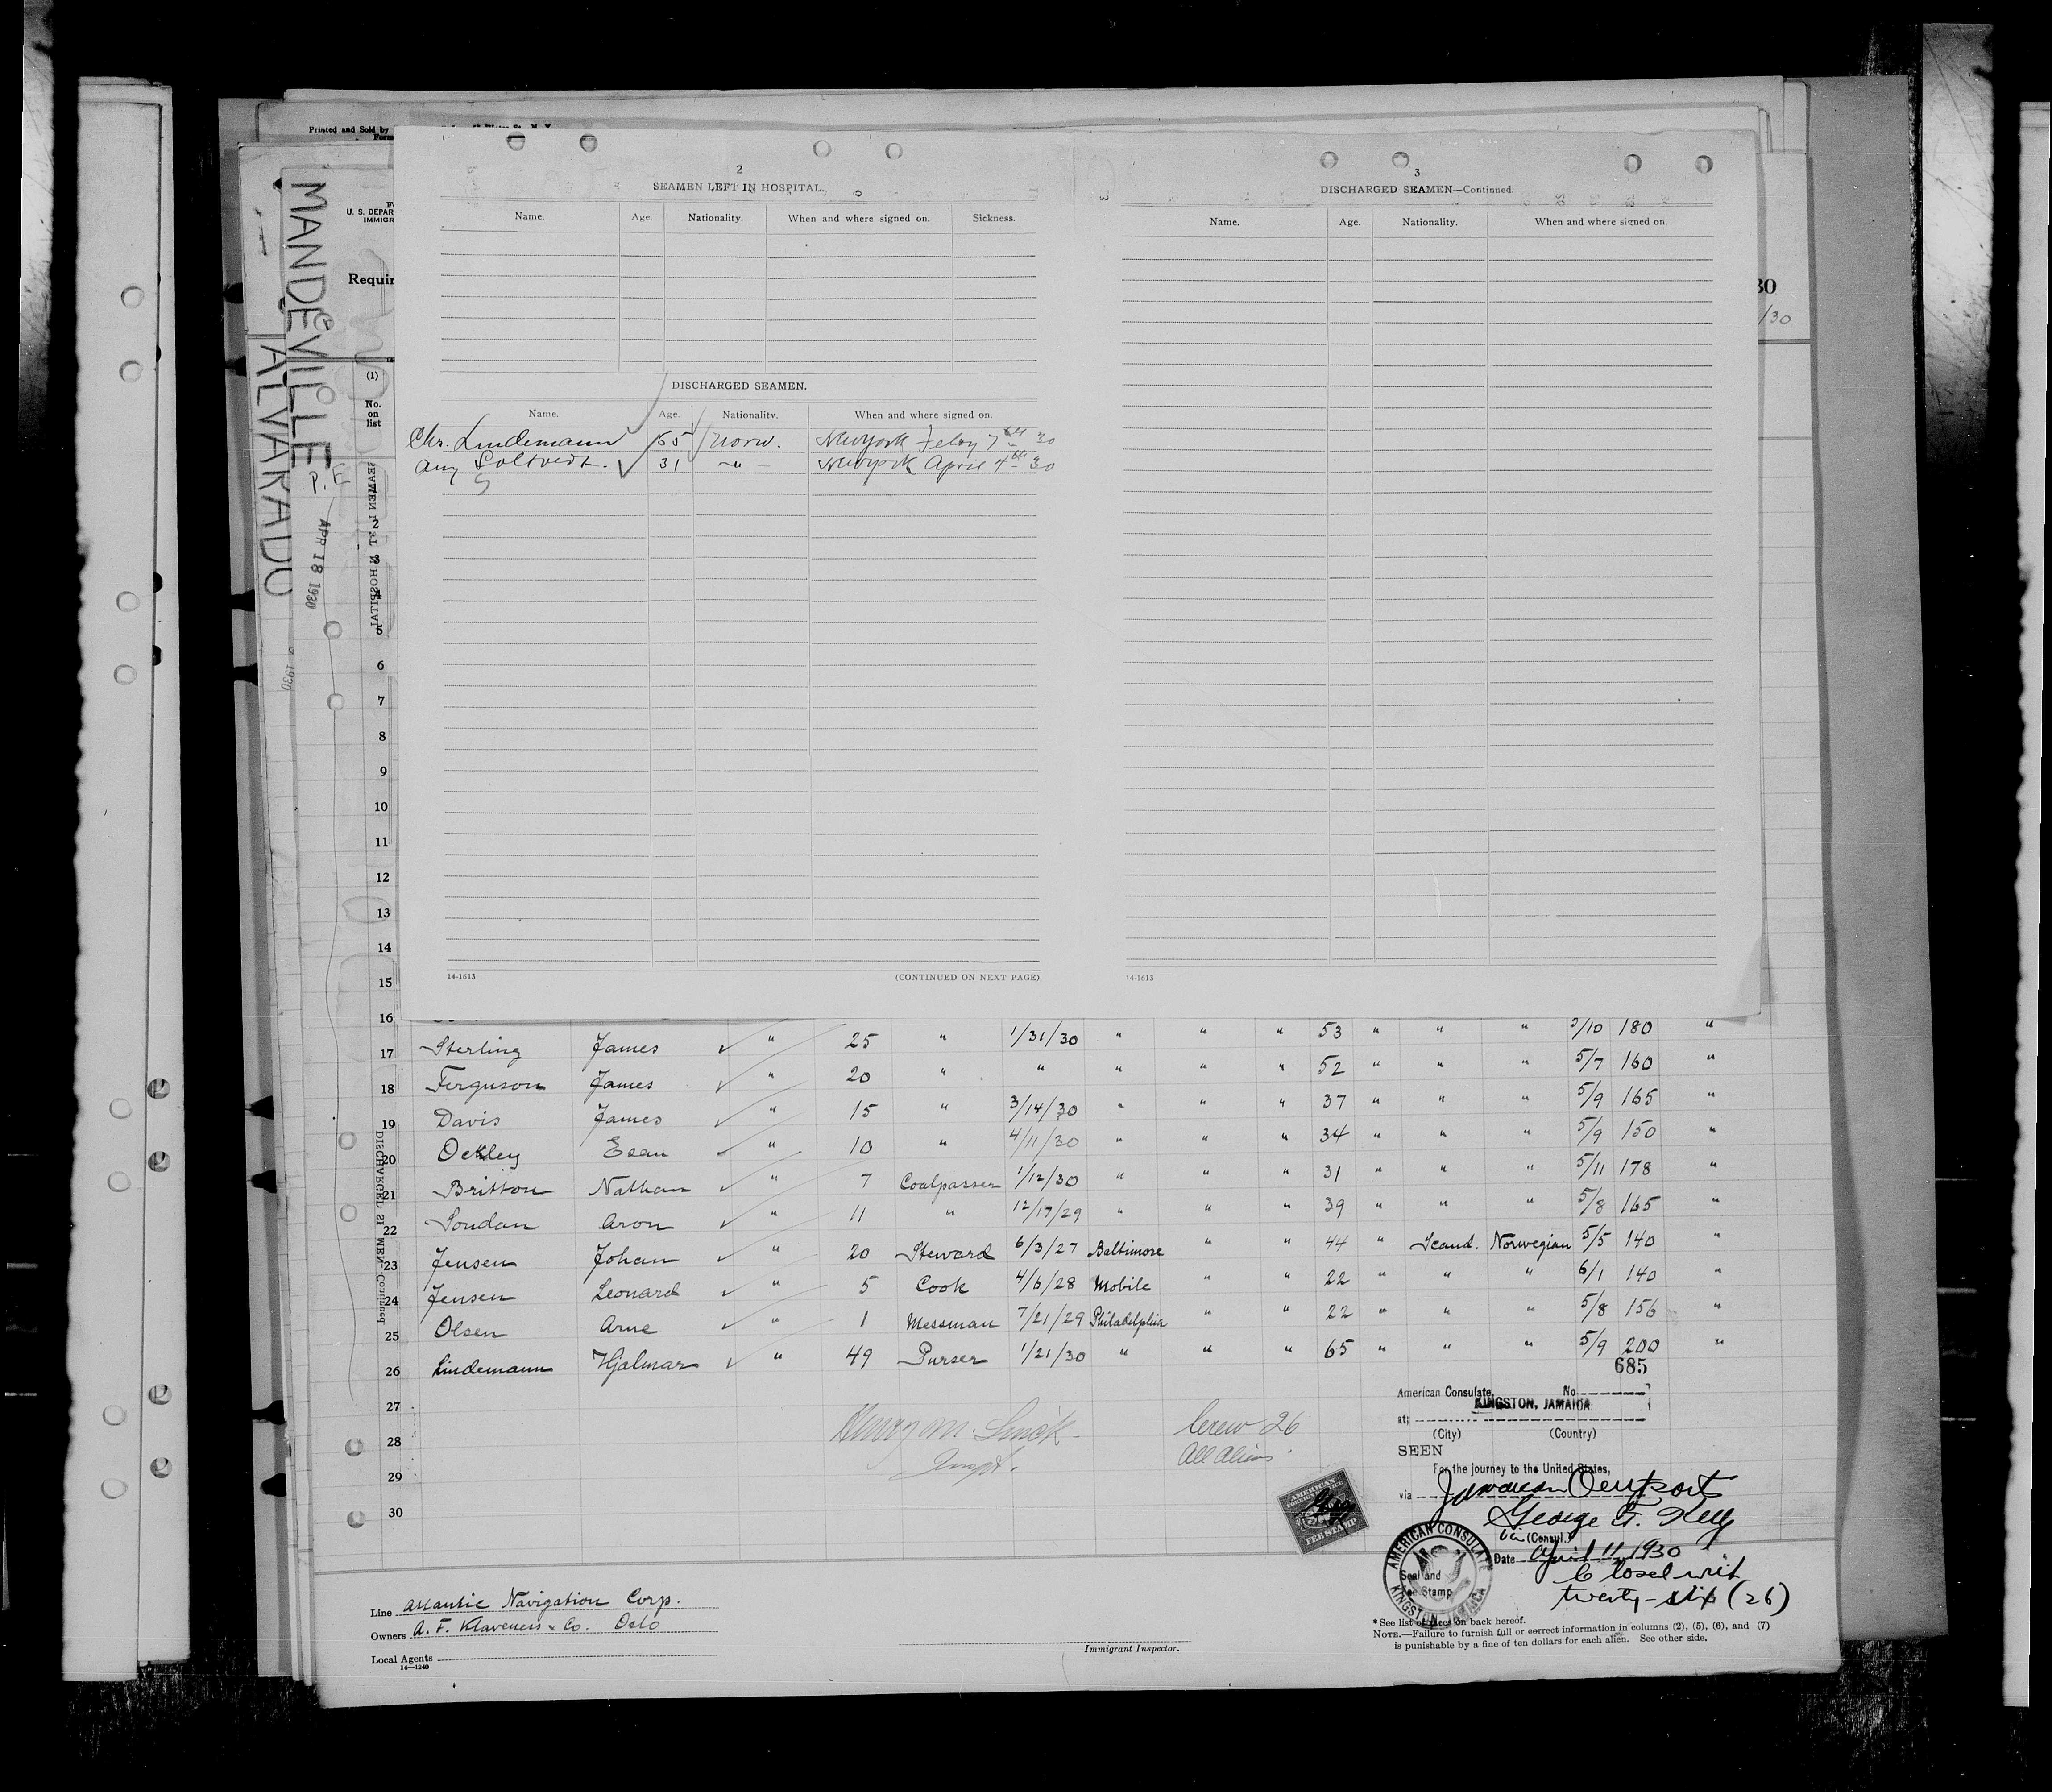 Printed and Sold by
2
SEAMEN LEFT IN HOSPITAL.
Name. Age. Nationality. When and where signed on. Sickness.
DISCHARGED SEAMEN.
Name. Age. Nationality. When and where signed on.
Chr. Lindemann 65 Norw. Newyork Febry 7th 30
31 " Newyork April 4th 30
14-1613 (CONTINUED ON NEXT PAGE)
3
DISCHARGED SEAMEN—Continued.
Name. Age. Nationality. When and where signed on.
14-1613
MANDEVILLE
ALVARADO
P. E.
APR 18 1930
U. S. DEPAR
IMMIGR
Requir
30
/30
(1)
No.
on
list
SEAMEN LEFT IN HOSPITAL
DISCHARGED SEAMEN—Continued
2
3
4
5
6
7
8
9
10
11
12
13
14
15
16
17 Sterling James " 25 " 1/31/30 " " " 53 " " " 5/10 180 "
18 Ferguson James " 20 " " " " " 52 " " " 5/7 160 "
19 Davis James " 15 " 3/14/30 " " " 37 " " " 5/9 165 "
20 Ockley Esau " 10 " 4/11/30 " " " 34 " " " 5/9 150 "
21 Britton Nathan " 7 Coalpasser 1/12/30 " " " 31 " " " 5/11 178 "
22 Soudan Aron " 11 " 12/17/29 " " " 39 " " " 5/8 165 "
23 Jensen Johan " 20 Steward 6/3/27 Baltimore " " 44 " Scand. Norwegian 5/5 140 "
24 Jensen Leonard " 5 Cook 4/6/28 Mobile " " 22 " " " 6/1 140 "
25 Olsen Arne " 1 Messman 7/21/29 Philadelphia " " 22 " " " 5/8 156 "
26 Lindemann Hjalmar " 49 Purser 1/21/30 " " " 65 " " " 5/9 200 "
27
28
29
30
685
American Consulate, No.
KINGSTON, JAMAICA
at;
(City) (Country)
SEEN
For the journey to the United States,
via Jamaican Outports
George F. Kelly
Vice (Consul.)
Date April 11, 1930
Seal and
Fee Stamp
Closed with
twenty-six (26)
AMERICAN CONSULATE
KINGSTON, JAMAICA
AMERICAN
FEE STAMP
Henry M.
Inspt.
Crew 26
All Aliens
Line Atlantic Navigation Corp.
Owners A. F. Klaveness & Co. Oslo
Local Agents
14—1240
Immigrant Inspector.
* See list of races on back hereof.
NOTE.—Failure to furnish full or correct information in columns (2), (5), (6), and (7)
is punishable by a fine of ten dollars for each alien. See other side.